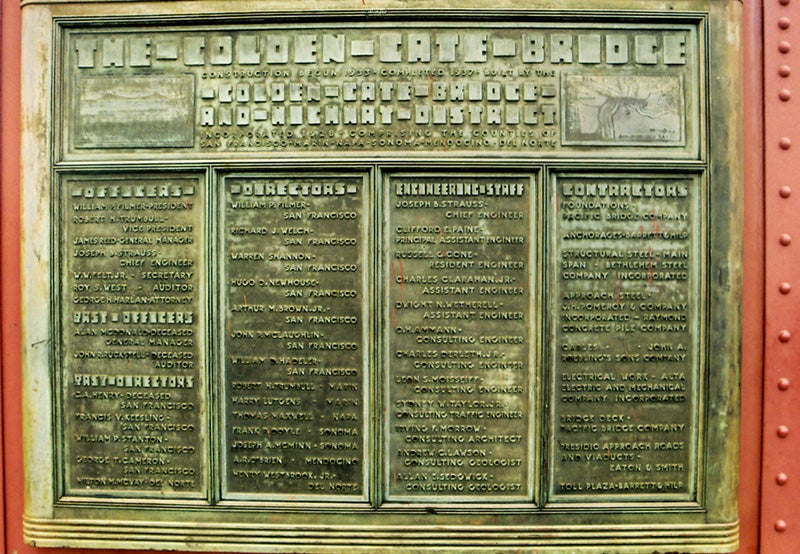 THE-GOLDEN-GATE-BRIDGE
CONSTRUCTION BEGUN 1933-COMPLETED 1937-BUILT BY THE
-GOLDEN-GATE-BRIDGE-
AND-HIGHWAY-DISTRICT
INCORPORATED 1928-COMPRISING THE COUNTIES OF
SAN FRANCISCO-MARIN-NAPA-SONOMA-MENDOCINO-DEL NORTE
-OFFICERS-
WILLIAM P. FILMER-PRESIDENT
ROBERT H. TRUMBULL-
VICE PRESIDENT
JAMES REED-GENERAL MANAGER
JOSEPH B. STRAUSS-
CHIEF ENGINEER
W.W. FELT, JR.- SECRETARY
ROY S. WEST - AUDITOR
GEORGE H. HARLAN-ATTORNEY
PAST-OFFICERS
ALAN McDONALD-DECEASED
GENERAL MANAGER
JOHN R. RUCKSTELL-DECEASED
AUDITOR
PAST-DIRECTORS
C.A. HENRY-DECEASED
SAN FRANCISCO
FRANCIS V. KEESLING-
SAN FRANCISCO
WILLIAM P. STANTON-
SAN FRANCISCO
GEORGE T. CAMERON-
SAN FRANCISCO
MILTON M. McVAY-DEL NORTE
-DIRECTORS-
WILLIAM P. FILMER-
SAN FRANCISCO
RICHARD J. WELCH-
SAN FRANCISCO
WARREN SHANNON-
SAN FRANCISCO
HUGO D. NEWHOUSE-
SAN FRANCISCO
ARTHUR M. BROWN, JR.-
SAN FRANCISCO
JOHN P. McLAUGHLIN-
SAN FRANCISCO
WILLIAM D. HADELER-
SAN FRANCISCO
ROBERT H. TRUMBULL - MARIN
HARRY LUTGENS - MARIN
THOMAS MAXWELL - NAPA
FRANK P. DOYLE - SONOMA
JOSEPH A. McMINN-SONOMA
A.R. O'BRIEN - MENDOCINO
HENRY WESTBROOK, JR.-
DEL NORTE
ENGINEERING-STAFF
JOSEPH B. STRAUSS-
CHIEF ENGINEER
CLIFFORD E. PAINE-
PRINCIPAL ASSISTANT ENGINEER
RUSSELL G. CONE-
RESIDENT ENGINEER
CHARLES CLARAHAN, JR-
ASSISTANT ENGINEER
DWIGHT N. WETHERELL-
ASSISTANT ENGINEER
O.H. AMMANN-
CONSULTING ENGINEER
CHARLES DERLETH, JR.-
CONSULTING ENGINEER
LEON S. MOISSEIFF-
CONSULTING ENGINEER
SYDNEY W. TAYLOR, JR.-
CONSULTING TRAFFIC ENGINEER
IRVING F. MORROW-
CONSULTING ARCHITECT
ANDREW C. LAWSON-
CONSULTING GEOLOGIST
ALLAN E. SEDGWICK-
CONSULTING GEOLOGIST
CONTRACTORS
FOUNDATIONS-
PACIFIC BRIDGE COMPANY
ANCHORAGES-BARRETT & HILP
STRUCTURAL STEEL-MAIN
SPAN - BETHLEHEM STEEL
COMPANY INCORPORATED
APPROACH STEEL-
J.H. POMEROY & COMPANY
INCORPORATED - RAYMOND
CONCRETE PILE COMPANY
CABLES - JOHN A.
ROEBLING'S SONS COMPANY
ELECTRICAL WORK - ALTA
ELECTRIC AND MECHANICAL
COMPANY INCORPORATED
BRIDGE DECK-
PACIFIC BRIDGE COMPANY
PRESIDIO APPROACH ROADS
AND VIADUCTS-
EATON & SMITH
TOLL PLAZA-BARRETT & HILP